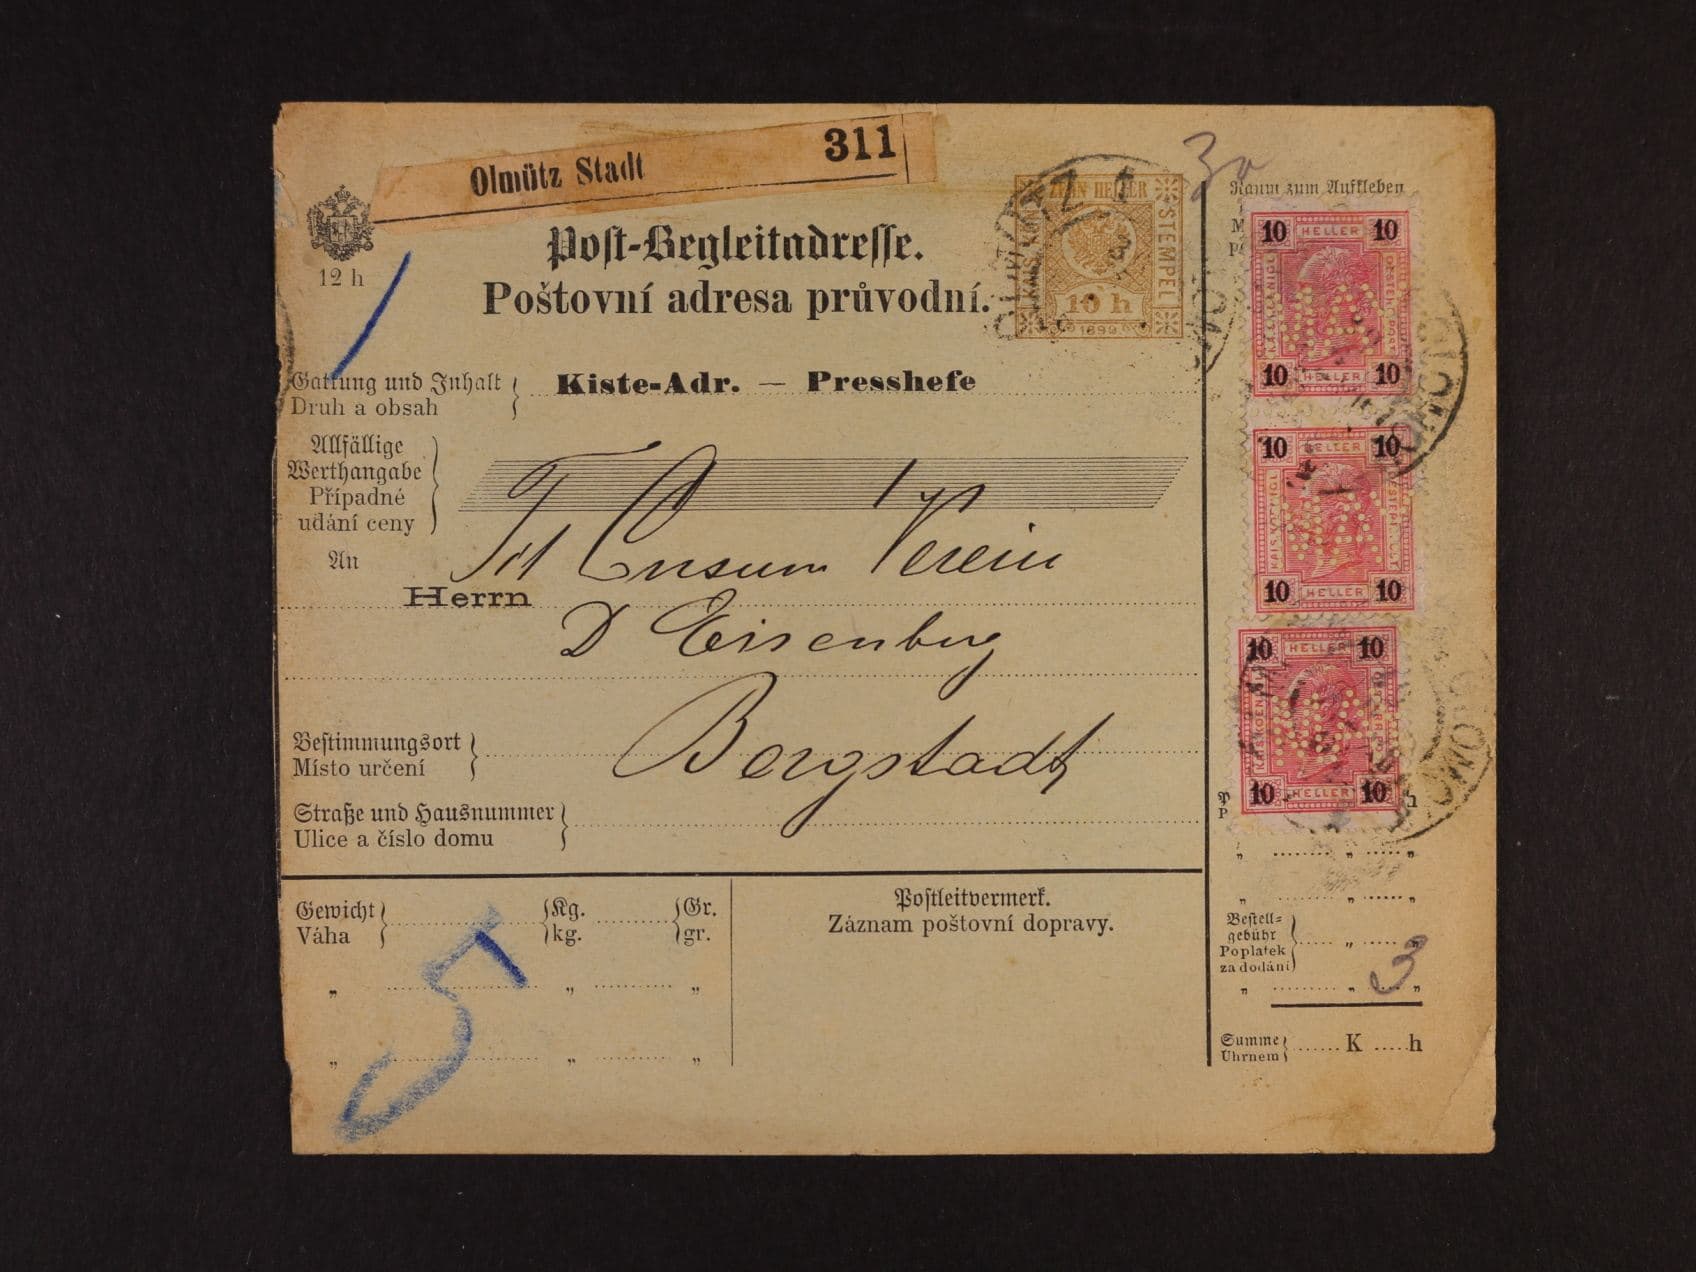 Olmütz Stadt 311
3
12 h
Post-Begleitadresse.
Poštovní adresa průvodní.
ZEHN HELLER
STEMPEL
10 h
1899
Raum zum Aufkleben
Gattung und Inhalt
Druh a obsah
Kiste-Adr. — Presshefe
Allfällige
Werthangabe
Případné
udání ceny
An
Herrn
Tit Consum Verein
D Eisenberg
Bestimmungsort
Místo určení
Bergstadt
Straße und Hausnummer
Ulice a číslo domu
Gewicht
Váha
Kg.
kg.
Gr.
gr.
5
Postleitvermerk.
Záznam poštovní dopravy.
10 HELLER 10
10 HELLER 10
10 HELLER 10
10 HELLER 10
10 HELLER 10
10 HELLER 10
h
P
Bestell-
gebühr
Poplatek
za dodání
3
Summe
Úhrnem
K h